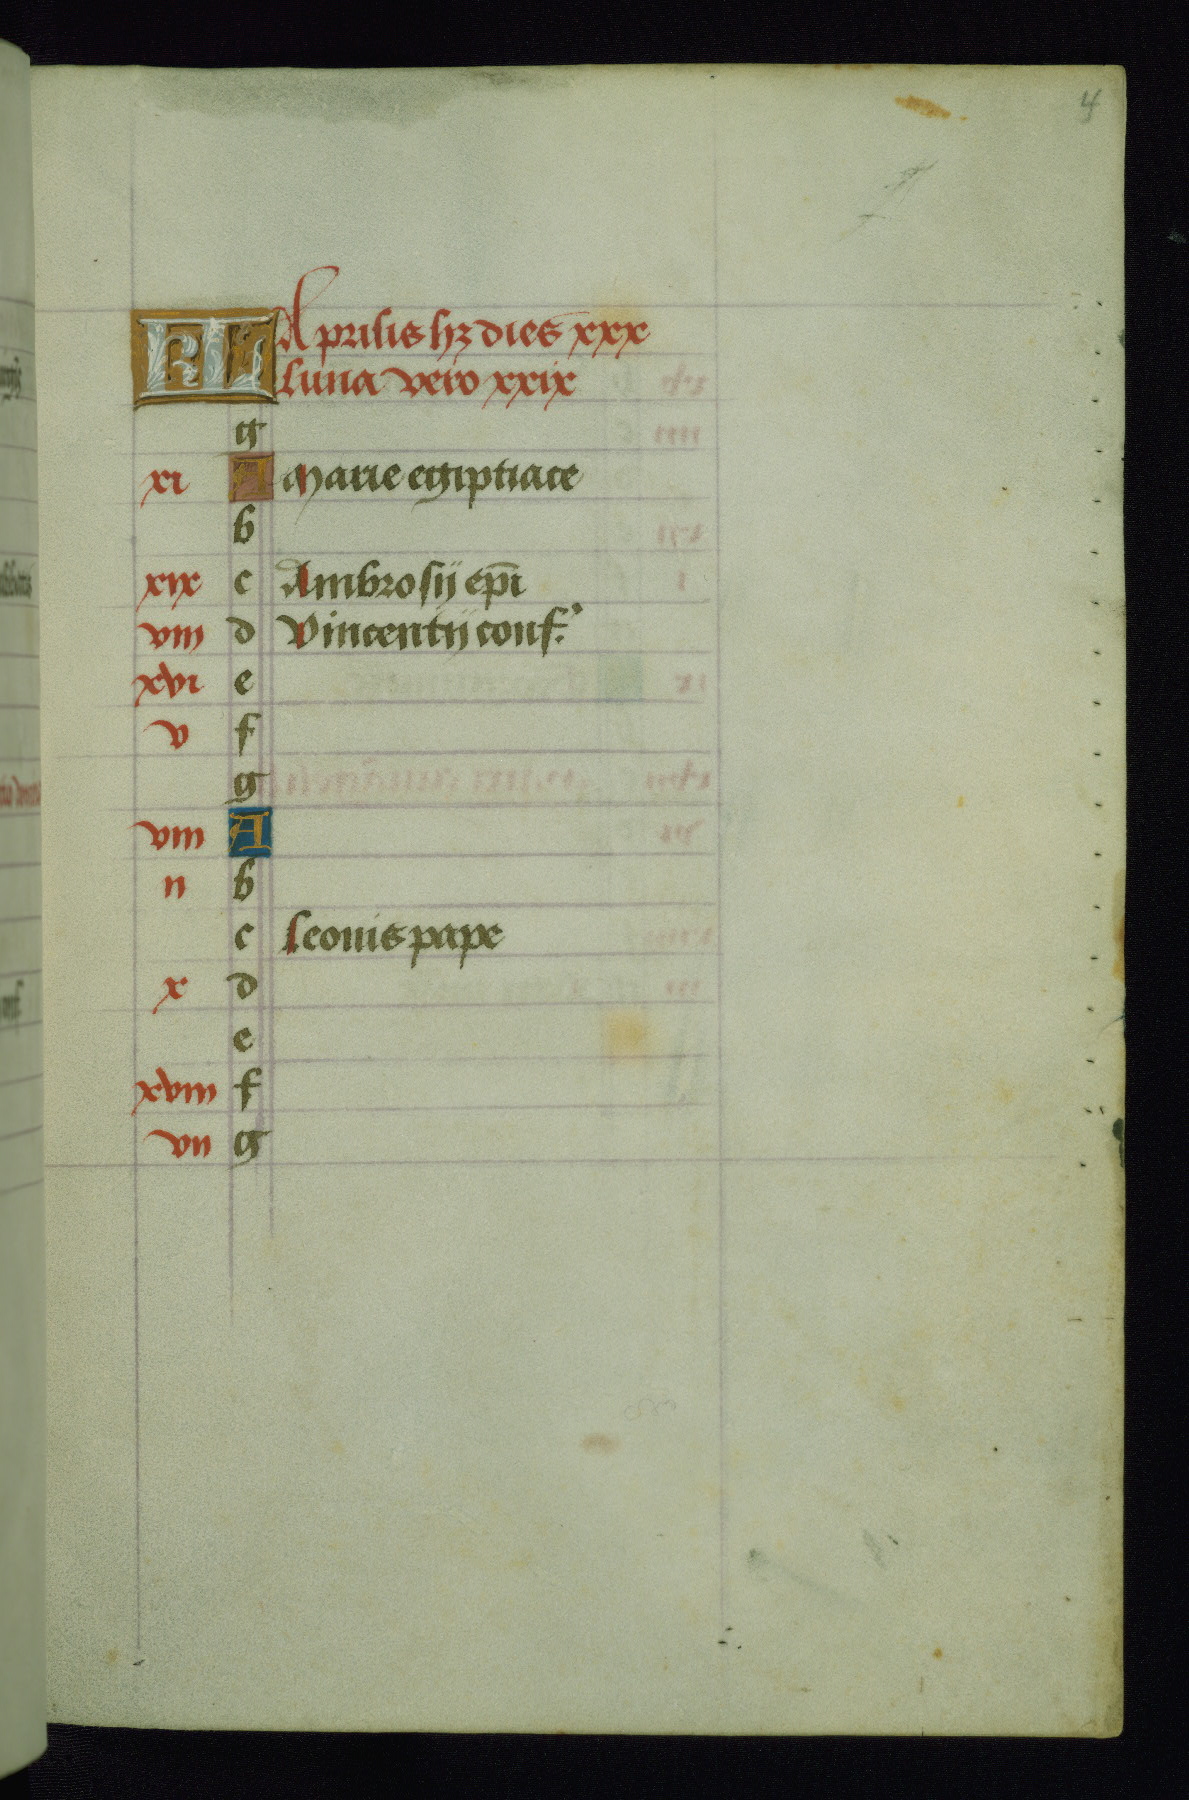 4
KL Aprilis hꝫ dies xxx
Luna vero xxix
g
xi A Marie egiptiace
b
xix c Ambrosij ep̅i
viii d Vincentij conf.
xvi e
v f
g
viii A
ii b
c Leonis pape
x d
e
xviii f
vii g